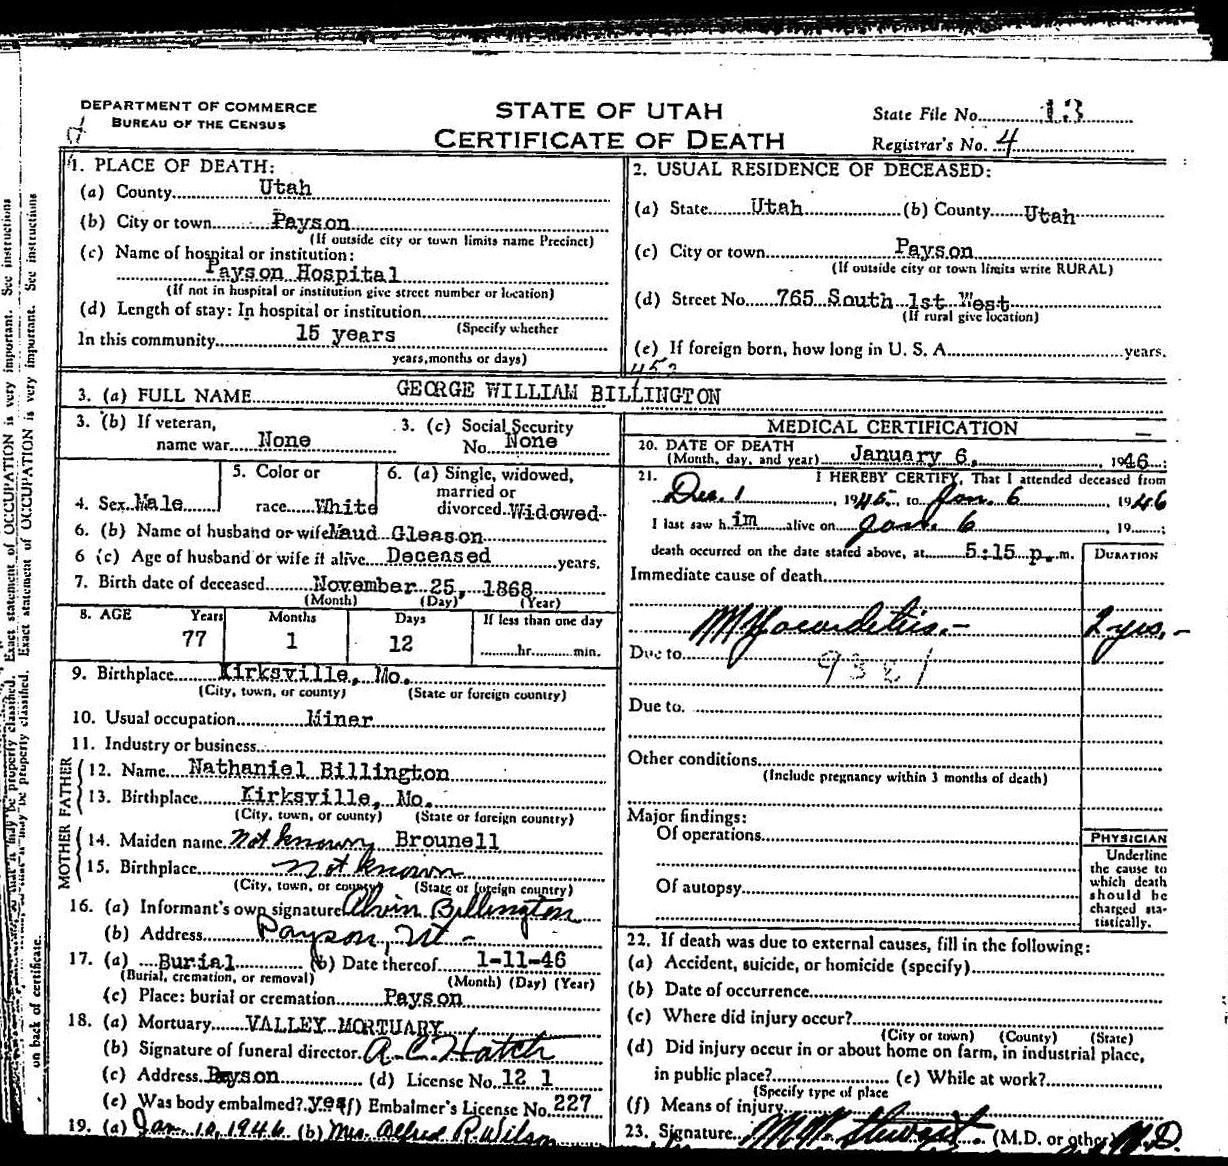 DEPARTMENT OF COMMERCE
BUREAU OF THE CENSUS
STATE OF UTAH
CERTIFICATE OF DEATH
State File No. 13
Registrar's No. 4
1. PLACE OF DEATH:
(a) County Utah
(b) City or town Payson
(If outside city or town limits name Precinct)
(c) Name of hospital or institution:
Payson Hospital
(If not in hospital or institution give street number or location)
(d) Length of stay: In hospital or institution
(Specify whether
In this community 15 years
years, months or days)
2. USUAL RESIDENCE OF DECEASED:
(a) State Utah (b) County Utah
(c) City or town Payson
(If outside city or town limits write RURAL)
(d) Street No. 765 South 1st West
(If rural give location)
(e) If foreign born, how long in U. S. A. years.
3. (a) FULL NAME GEORGE WILLIAM BILLINGTON
3. (b) If veteran,
name war None
3. (c) Social Security
No. None
4. Sex Male
5. Color or
race White
6. (a) Single, widowed,
married or
divorced Widowed
6. (b) Name of husband or wife Maud Gleason
6 (c) Age of husband or wife if alive Deceased years.
7. Birth date of deceased November 25, 1868
(Month) (Day) (Year)
8. AGE Years Months Days If less than one day
77 1 12 hr. min.
9. Birthplace Kirksville, Mo.
(City, town, or county) (State or foreign country)
10. Usual occupation Miner
11. Industry or business
FATHER
12. Name Nathaniel Billington
13. Birthplace Kirksville, Mo.
(City, town, or county) (State or foreign country)
MOTHER
14. Maiden name Not known Brounell
15. Birthplace Not known
(City, town, or county) (State or foreign country)
16. (a) Informant's own signature Alvin Billington
(b) Address Payson, Ut -
17. (a) Burial (b) Date thereof 1-11-46
(Burial, cremation, or removal) (Month) (Day) (Year)
(c) Place: burial or cremation Payson
18. (a) Mortuary VALLEY MORTUARY
(b) Signature of funeral director. A. C. Hatch
(c) Address Payson (d) License No. 12 1
(e) Was body embalmed? yes (f) Embalmer's License No. 227
19. (a) Jan. 10, 1946 (b) Mrs Alfred R. Wilson
MEDICAL CERTIFICATION
20. DATE OF DEATH
(Month, day, and year) January 6, 1946
21. I HEREBY CERTIFY, That I attended deceased from
Dec. 1 1945 to Jan. 6 1946
I last saw him alive on Jan. 6 19
death occurred on the date stated above, at 5:15 p. m.
DURATION
Immediate cause of death
Myocarditis. - 2 yrs. -
Due to
Due to.
Other conditions
(Include pregnancy within 3 months of death)
Major findings:
Of operations
Of autopsy
PHYSICIAN
Underline
the cause to
which death
should be
charged sta-
tistically.
22. If death was due to external causes, fill in the following:
(a) Accident, suicide, or homicide (specify)
(b) Date of occurrence
(c) Where did injury occur?
(City or town) (County) (State)
(d) Did injury occur in or about home on farm, in industrial place,
in public place? (e) While at work?
(Specify type of place
(f) Means of injury
23. Signature M. W. Stewart (M.D. or other) M.D.
Exact statement of OCCUPATION is very important. See instructions
on back of certificate.